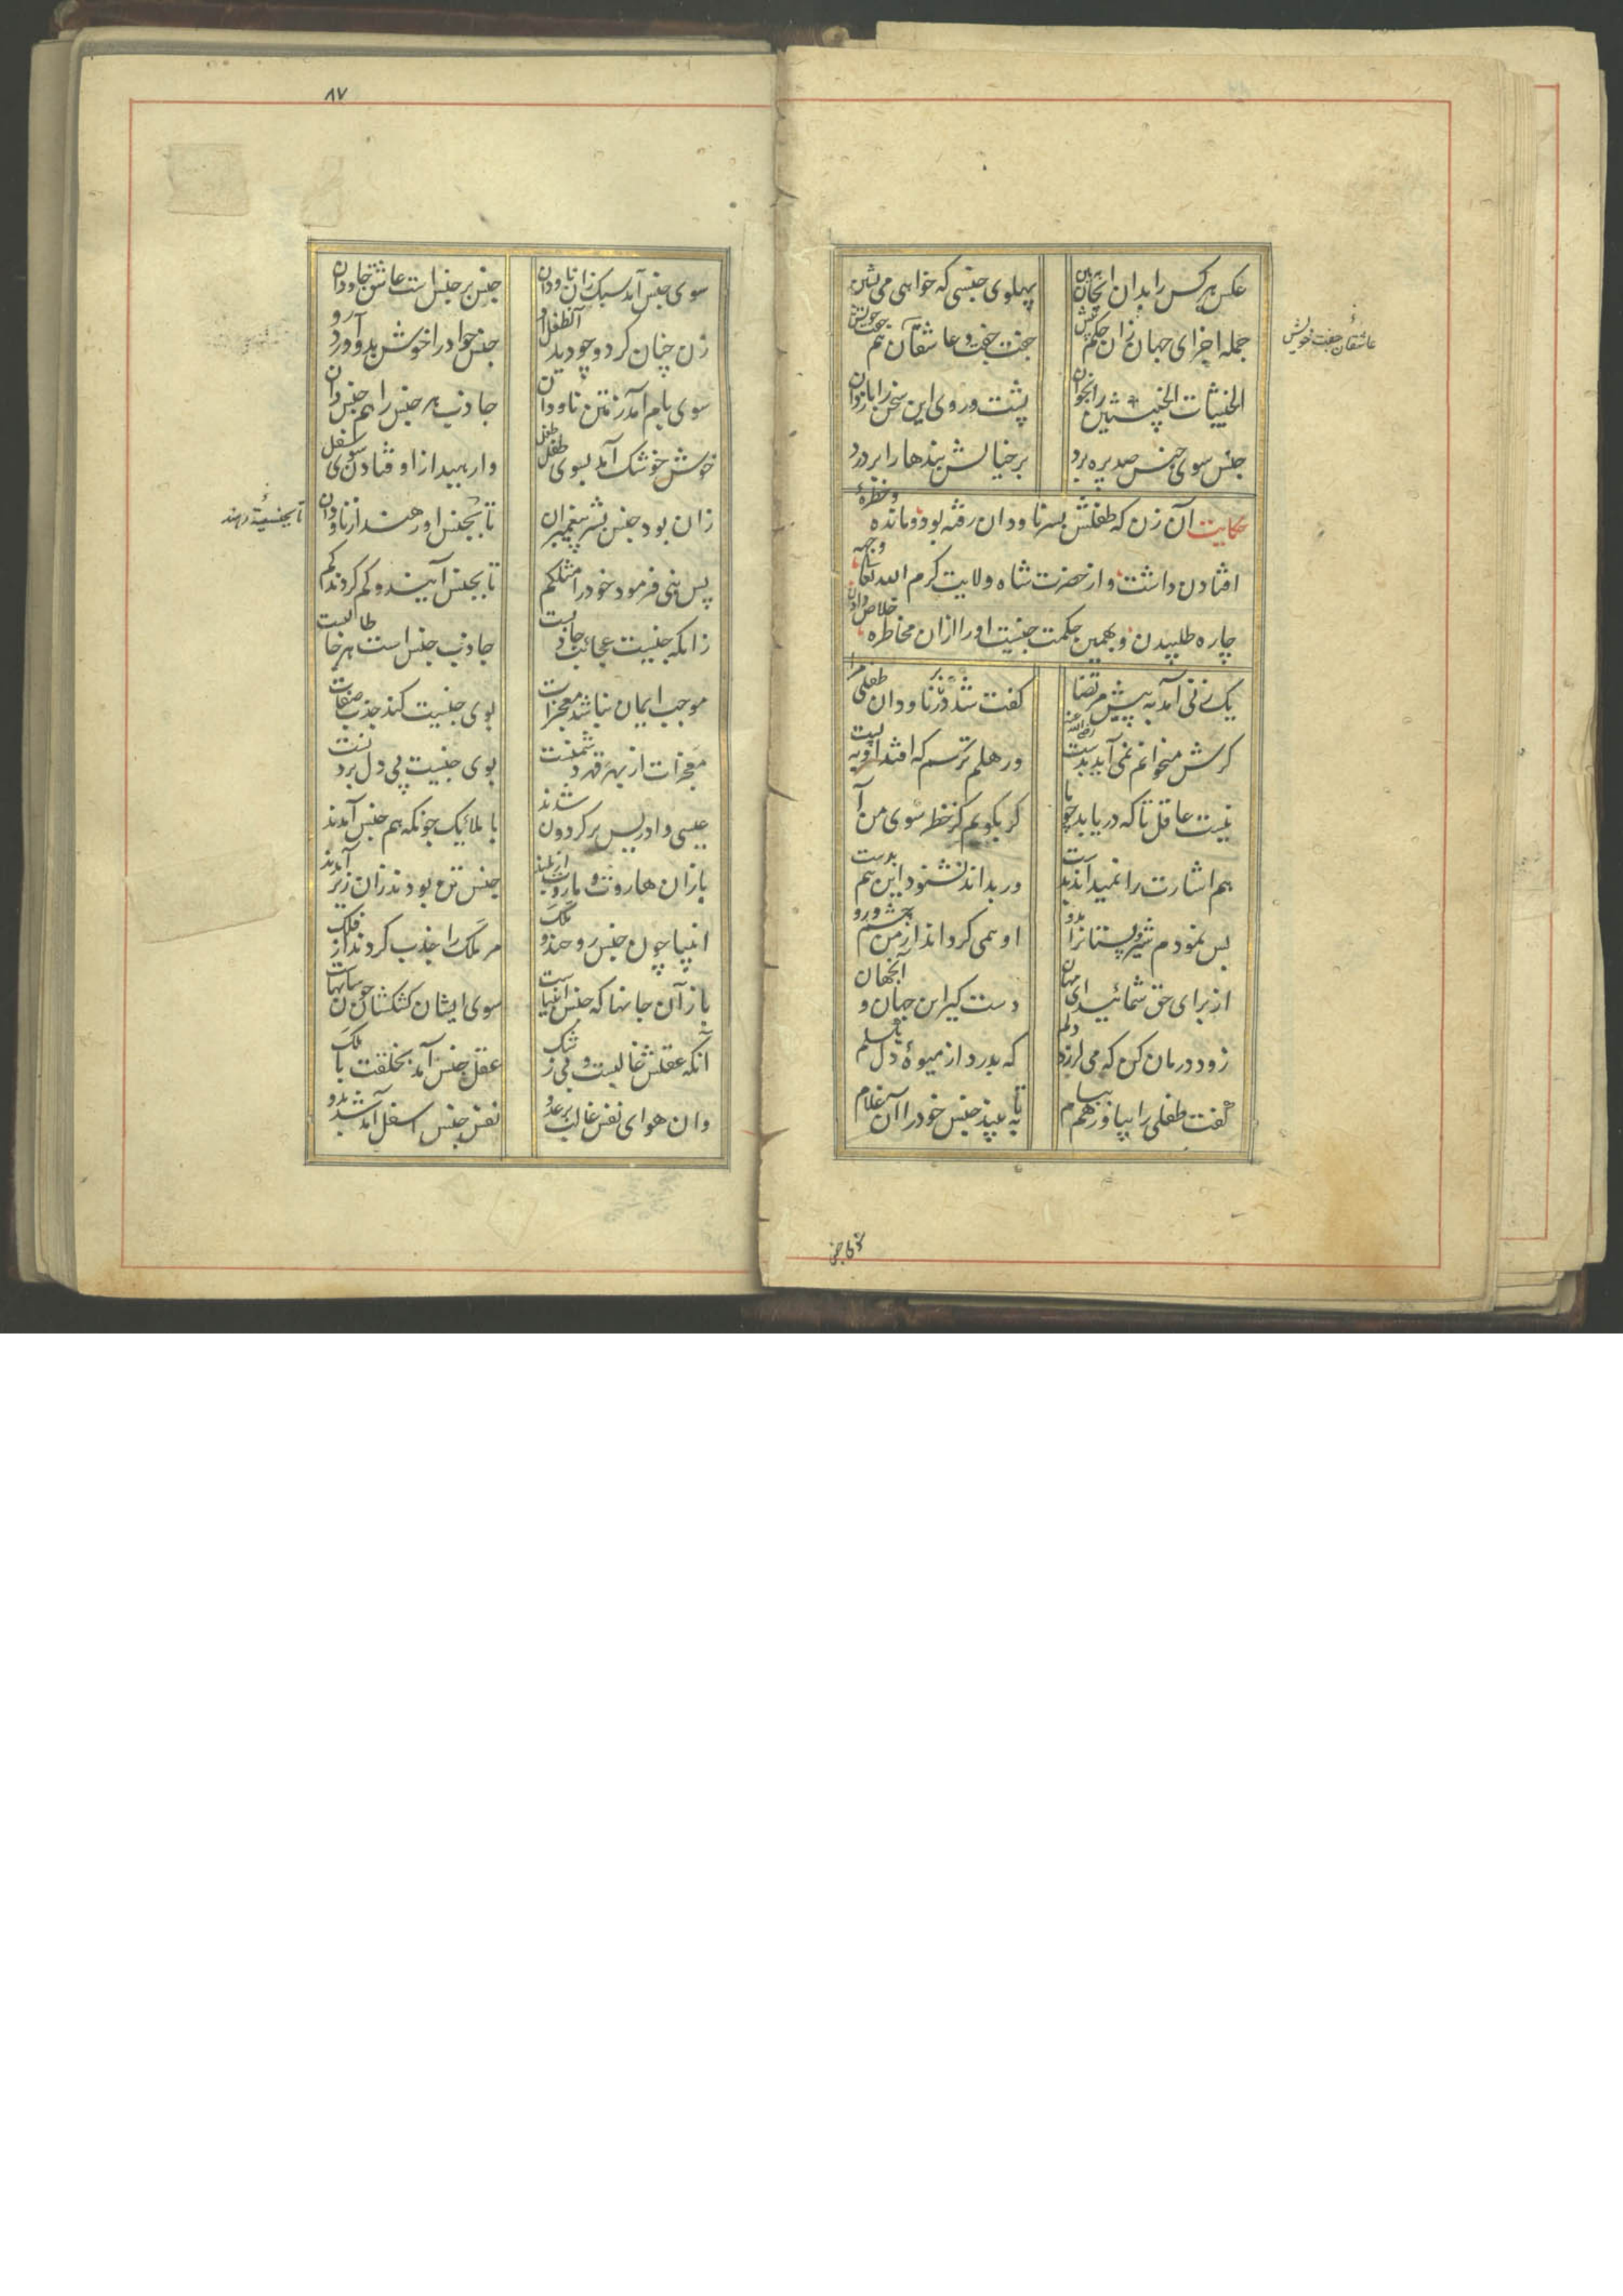 عکس هر کس را بدان ای جان ببین پهلوی جنسی که خواهی می نشین
جمله اجزای جهان زان حکم پیش جفت جفت و عاشقان هم جفت خویش
عاشقان جفت خویش
الخبیثات الخبیثین را بخوان پشت و روی این سخن را باز دان
جنس سوی جنس صد پره پرد بر خیالش بندها را بر درد
حکایت آن زن که طفلش بسر ناودان رفته بود و مانده و خطرهٔ
افتادن داشت و از حضرت شاه ولایت کرم الله تعالی وجهه
چاره طلبیدن و بهمین حکمت جنسیت او را ازان مخاطره خلاص دادن
یک زنی آمد به پیش مرتضا رضی الله عنه گفت شد در ناودان طفلی مرا
گرش میخوانم نمی آید بدست ور هلم ترسم که افتد او به پست
نیست عاقل تا که دریابد چو ما گر بگویم کز خطر سوی من آ
هم اشارت را نمیداند بدست ور بداند نشنود این هم بدست
بس نمودم شیر و پستانرا بدو او همی گرداند از من چشم و رو
از برای حق شمائید ای مهان دست گیر این جهان و آنجهان
زود درمان کن که می لرزد دلم که بدرد از میوهٔ دل بسلم
گفت طفلی را بیاور هم ببام تا ببیند جنس خود را آن غلام
۸۷
سوی جنس آمد سبک زان ناودان جنس بر جنس است عاشق جاودان
زن چنان کرد و چو دید آنطفل او جنس خود را خوش بدو آورد رو
سوی بام آمد ز متن ناودان جاذب هر جنس را هم جنس دان
خوش خوشک آمد بسوی طفل طفل وا رهید از اوفتادن سوی سفل
زان بود جنس بشر پیغمبران تا بجنس او رهند از ناودان
تا بجنسیة رهند
پس بنی فرمود خود را مثلکم تا بجنس آیند و کم گردند گم
زانکه جنسیت عجائب جاذبست جاذب جنس است هر جا طالبست
موجب ایمان نباشد معجزات بوی جنسیت کند جذب صفات
معجزات از بهر قهر دشمنست بوی جنسیت پی دل بردنست
عیسی و ادریس بر گردون شدند با ملائیک چونکه هم جنس آمدند
باز ان هاروت و ماروت از بلند جنس تن بودند زان زیر آمدند
انبیا چون جنس روحند و ملک مر ملک را جذب کردند از فلک
باز آن جانها که جنس انبیاست سوی ایشان کش کشان
آنکه عقلش غالبست و بی ز شک عقل جنس آمد بخلقت با ملک
وان هوای نفس غالب بر عدو نفس جنس اسفل آمد شد بدو